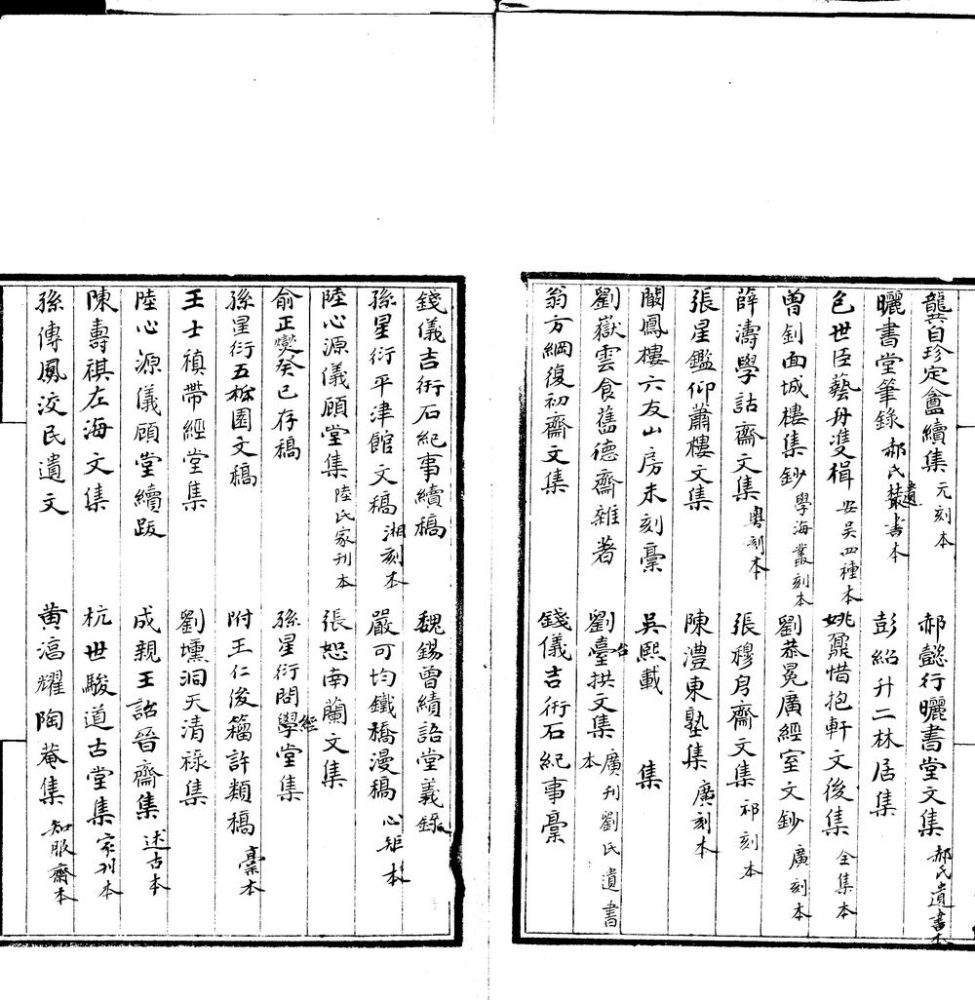 龔自珍定盦續集 元刻本 郝懿行曬書堂文集 郝氏遺書本
曬書堂筆錄 郝氏遺書本 彭紹升二林居集
包世臣藝舟雙楫 安吳四種本 姚鼐惜抱軒文後集 全集本
曾釗面城樓集鈔 學海叢刻本 劉恭冕廣經室文鈔 廣刻本
薛濤學詁齋文集 粵刻本 張穆㐆齋文集 祁刻本
張星鑑仰蕭樓文集 陳澧東塾集 廣刻本
闞鳳樓六友山房未刻稾 吳熙載 集
劉嶽雲食舊德齋雜著 劉台拱文集 廣刊劉氏遺書本
翁方綱復初齋文集 錢儀吉衎石紀事稾
錢儀吉衎石紀事續稿 魏錫曾績語堂義錄
孫星衍平津館文稿 湘刻本 嚴可均鐵橋漫稿 心矩本
陸心源儀顧堂集 陸氏家刊本 張恕南蘭文集
俞正燮癸巳存稿 孫星衍問經學堂集
孫星衍五松園文稿 附王仁俊籀許類稿 稾本
王士禎帶經堂集 劉壎洞天清祿集
陸心源儀顧堂續跋 成親王詒晉齋集 述古本
陳壽祺左海文集 杭世駿道古堂集 家刊本
孫傳鳳洨民遺文 黃淳耀陶菴集 知服齋本